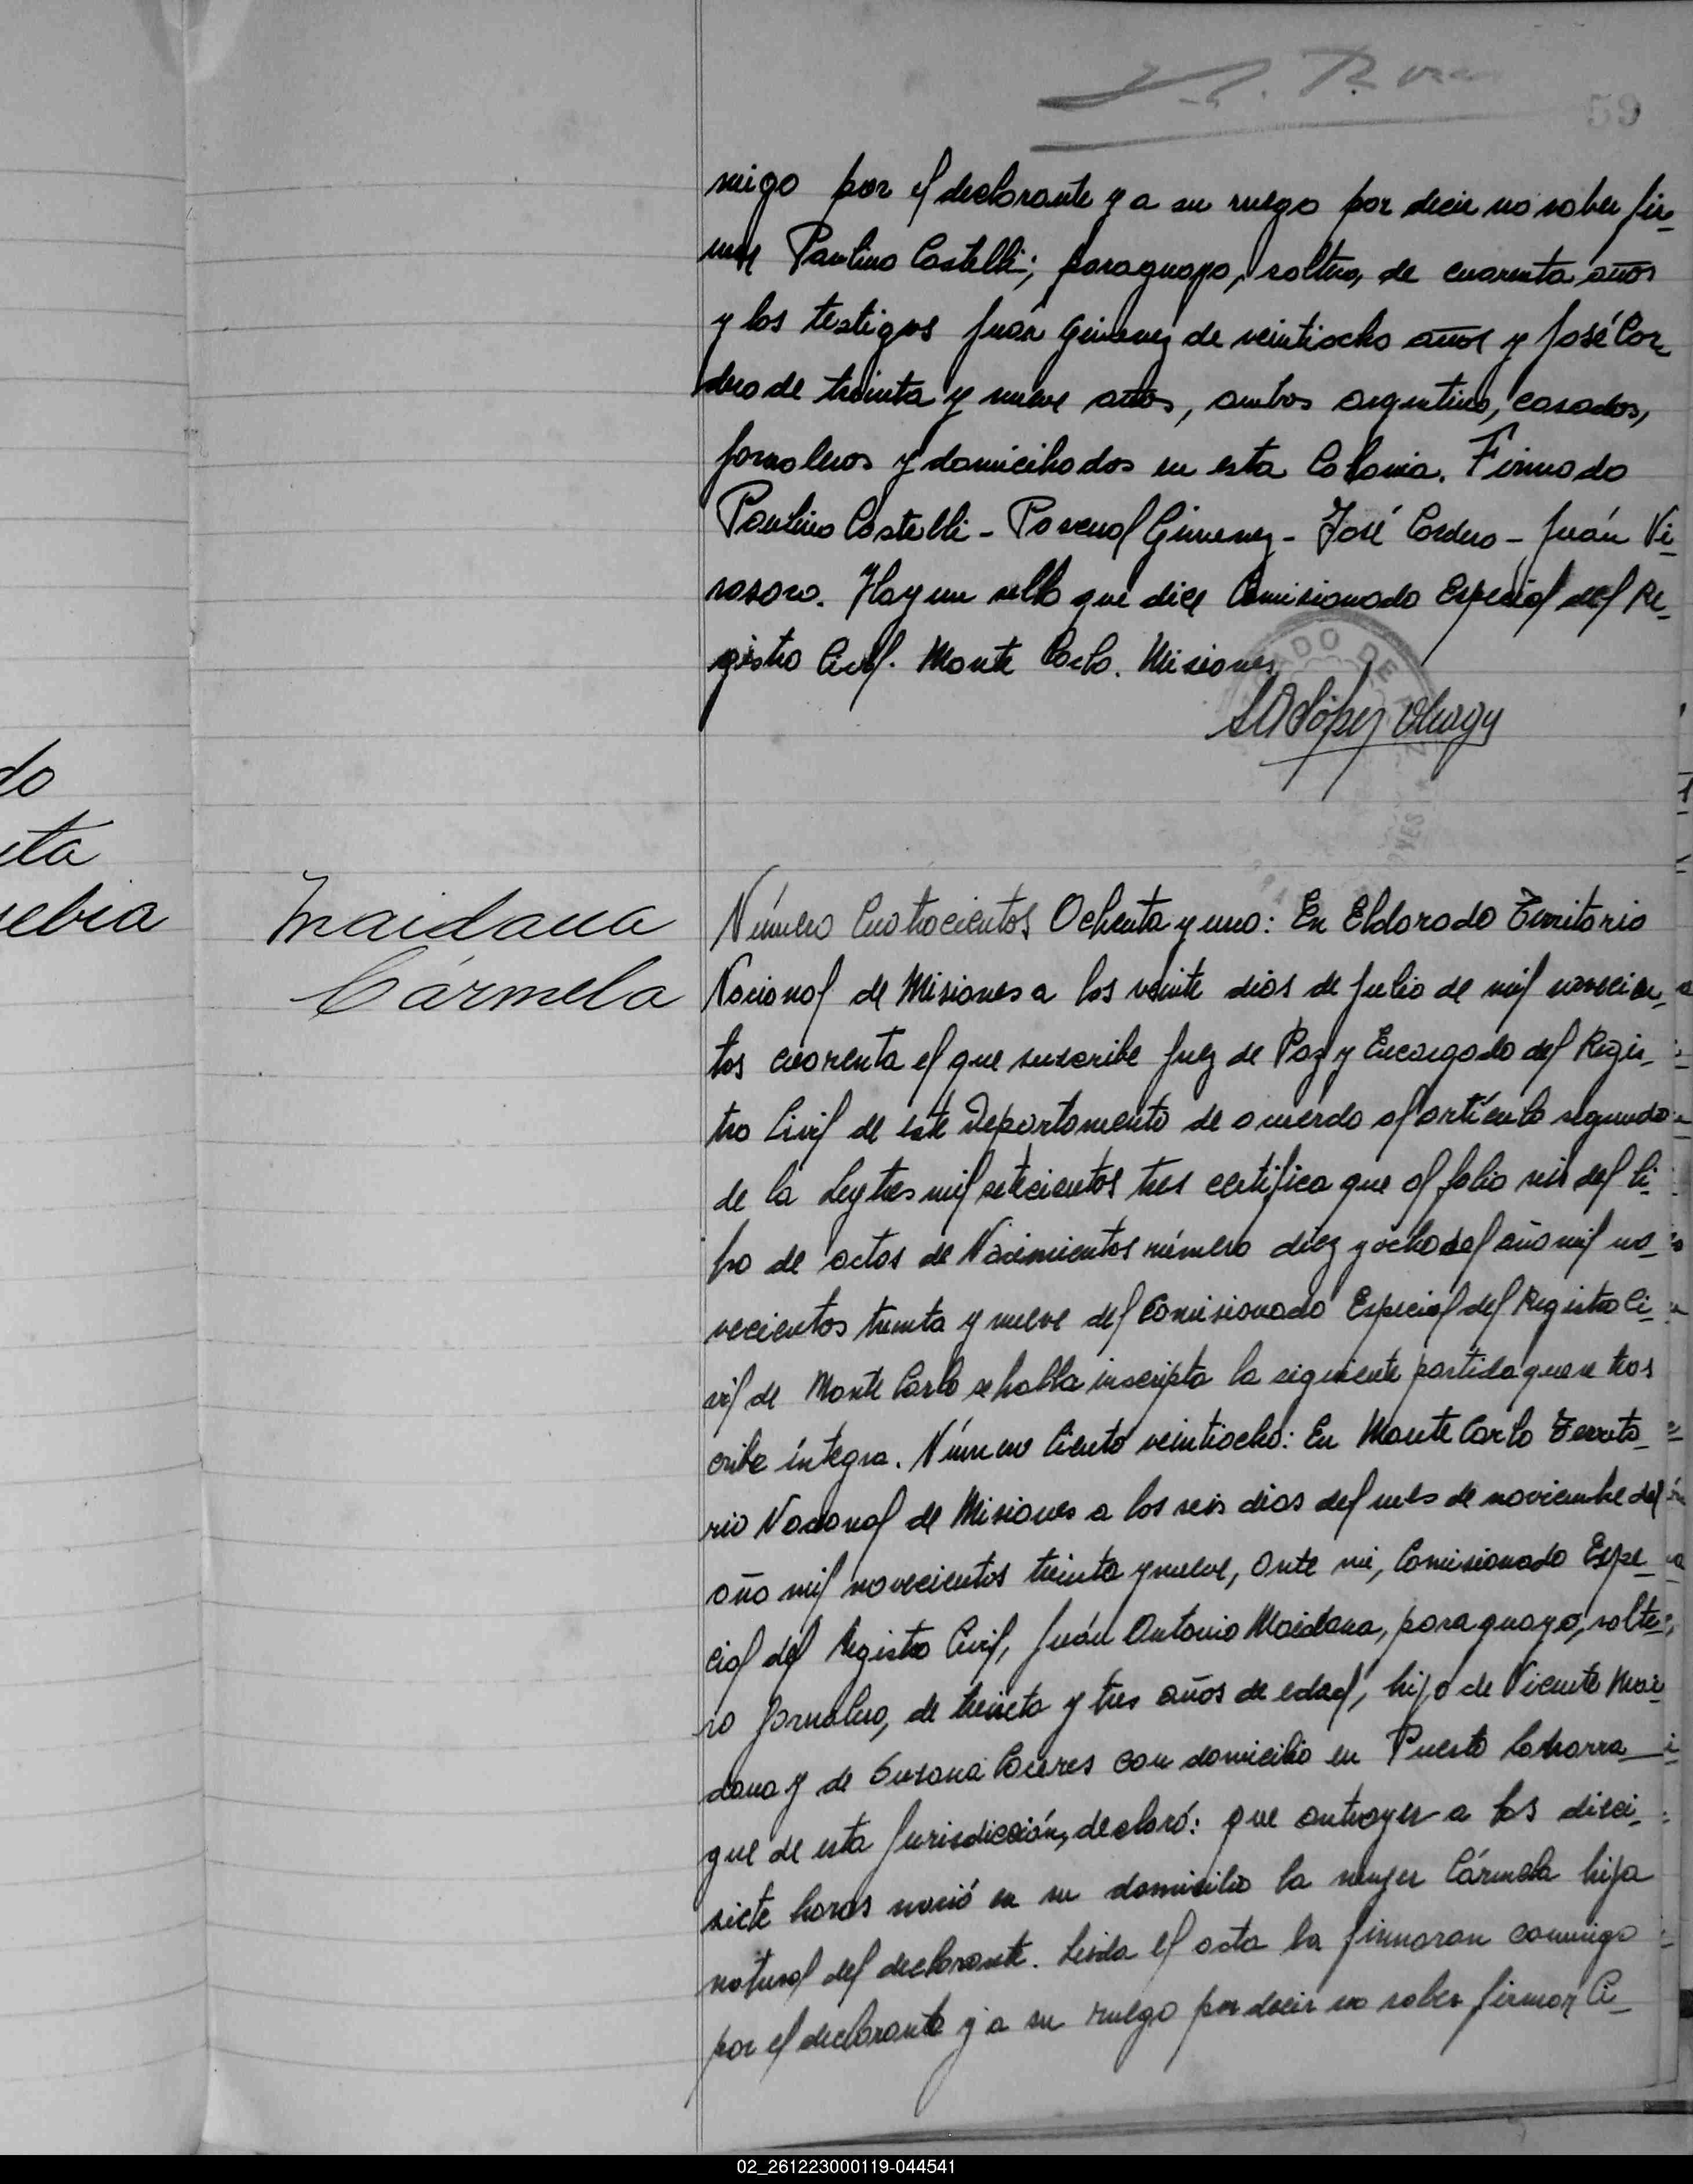 59
migo por el declarante y a su ruego por decir no saber fir_
mar Paulino Castelli; paraguayo, soltero, de cuarenta años
y los testigos Juán Gimenez de veintiocho años y José Cor_
dero de treinta y nueve años, ambos argentinos, casados,
jornaleros y domiciliados en esta Colonia. Firmado
Paulino Castelli - Pascual Gimenez - José Cordero - Juán Vi_
rasoro. Hay un sello que dice Comisionado Especial del Re_
gistro Civil. Monte Carlo. Misiones
do
ita
sebia
Maidana
Cármela
Número Cuatrocientos Ochenta y uno: En Eldorado Territorio
Nacional de Misiones a los veinte dias de Julio de mil novecien_
tos cuarenta el que suscribe Juez de Paz y Encargado del Regis_
tro Civil de este Departamento de acuerdo al artículo segundo
de la Ley tres mil setecientos tres certifica que al folio seis del li_
bro de actas de Nacimientos número diez y ocho del año mil no_
vecientos treinta y nueve del Comisionado Especial del Registro Ci_
vil de Monte Carlo se halla inscripta la siguiente partida que se tras
cribe íntegra. Número Ciento veintiocho: En Monte Carlo Territo_
rio Nacional de Misiones a los seis dias del mes de noviembre del
año mil novecientos treinta y nueve, ante mi, Comisionado Espe_
cial del Registro Civil, Juán Antonio Maidana, paraguayo, solte_
ro jornalero, de treinta y tres años de edad, hijo de Vicente Mai
dana y de Susana Caceres con domicilio en Puerto Laharra_
gue de esta Jurisdicción, declaró: que antoayer a las dieci_
siete horas nació en su domicilio la mujer Cármela hija
natural del declarante. Leida el acta la firmaron conmigo
por el declarante y a su ruego por decir no saber firmar Ci_
02_261223000119-044541